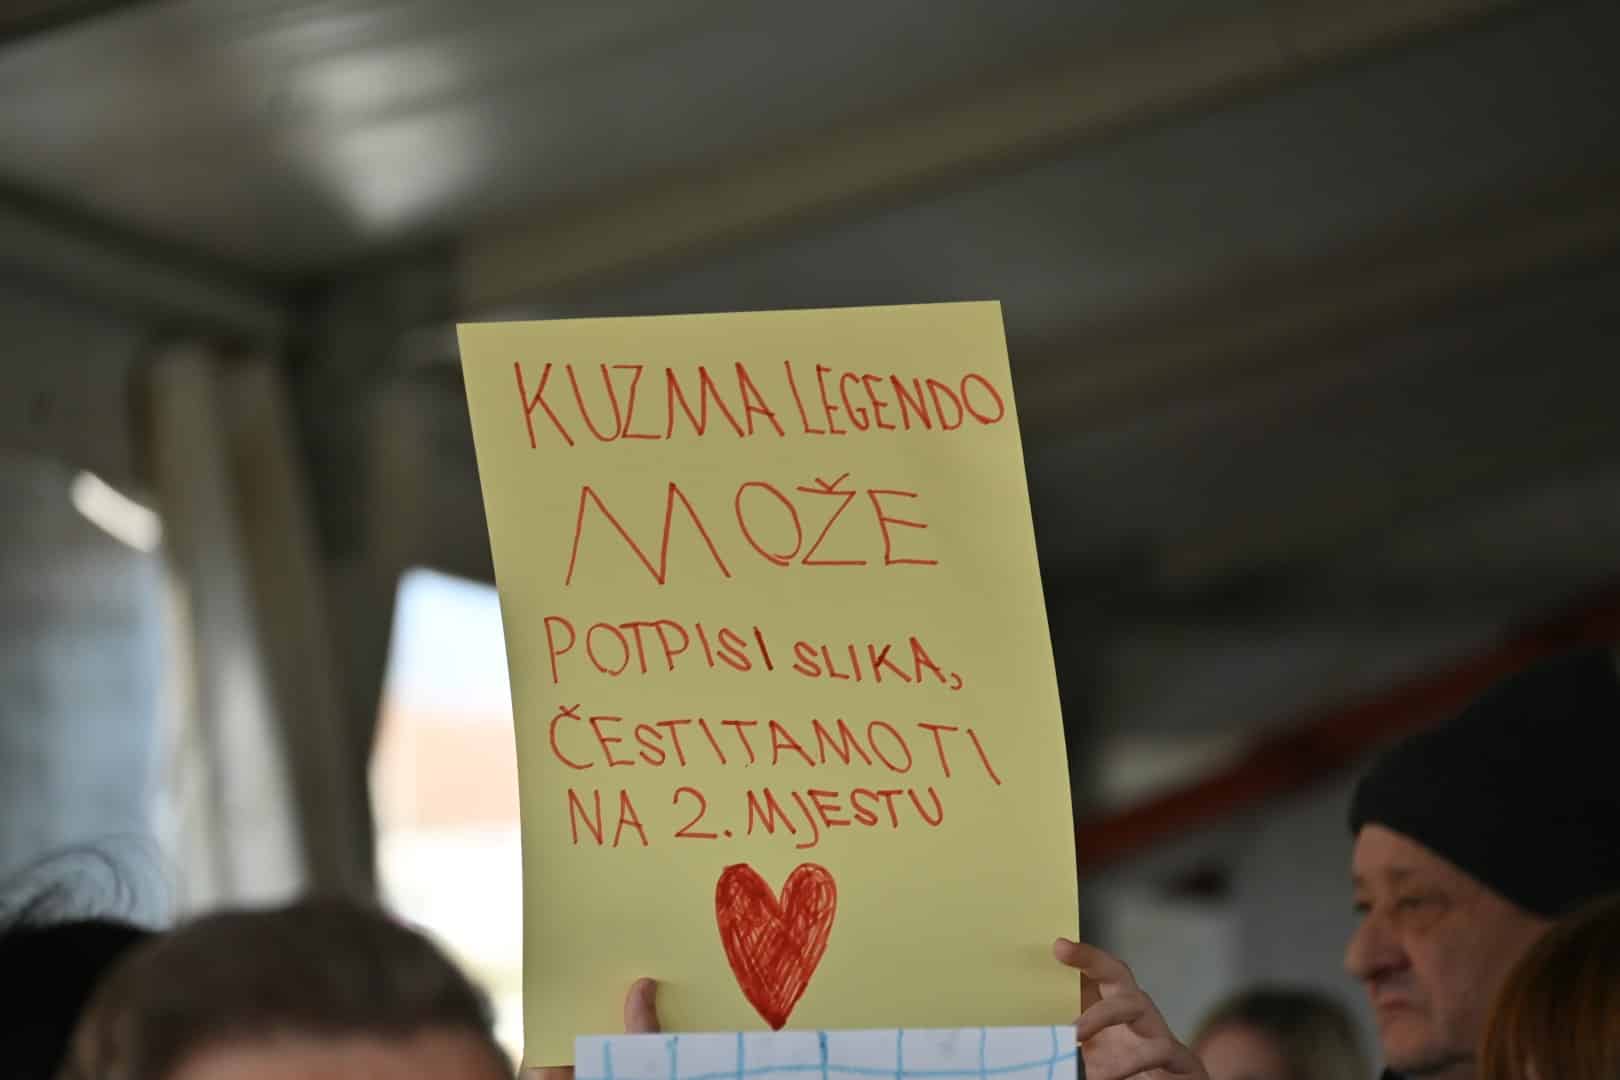 KUZMA LEGENDO
MOŽE
POTPIS I SLIKA,
ČESTITAMO TI
NA 2. MJESTU